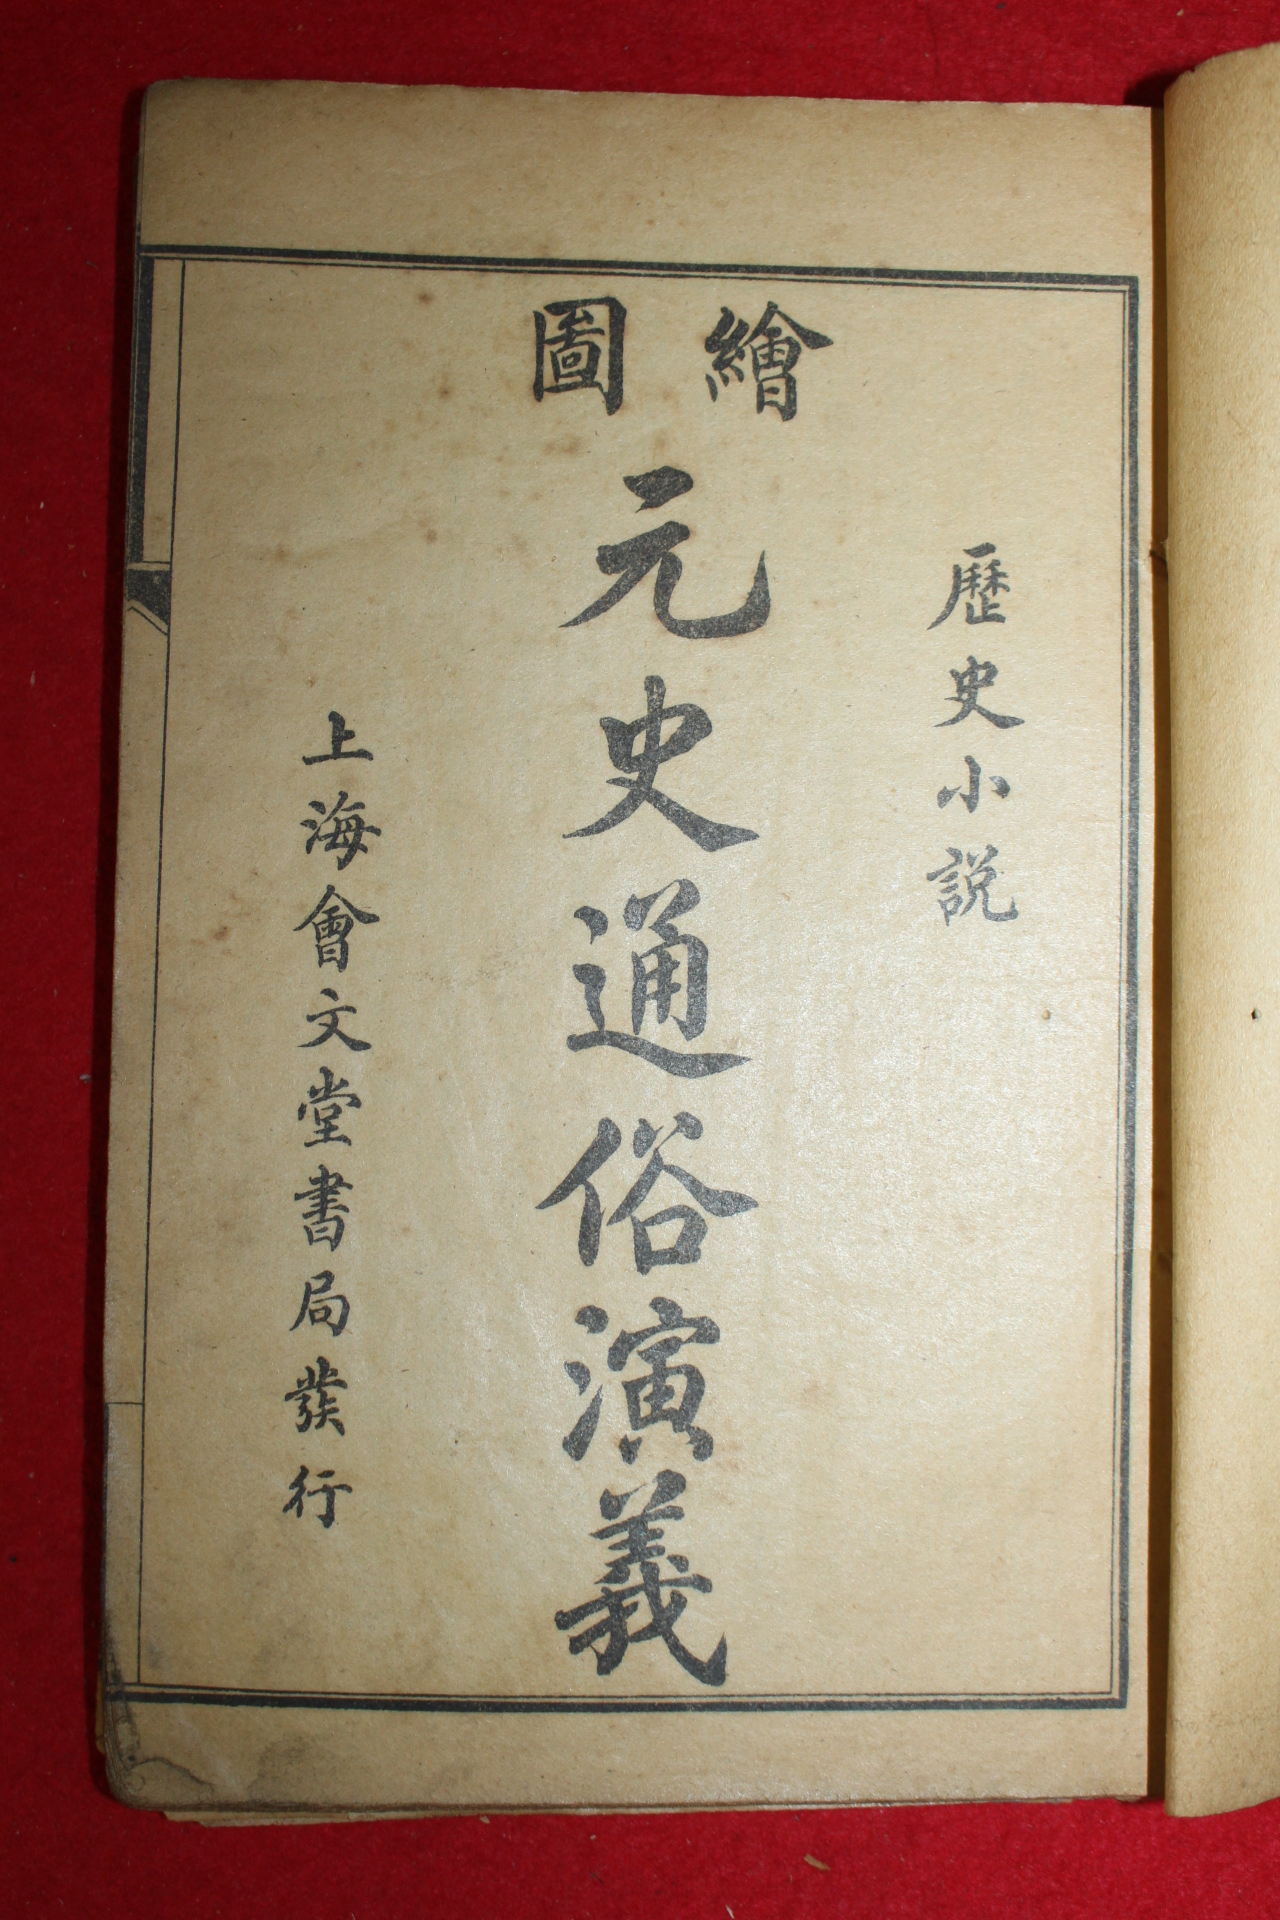 繪圖
歷史小說
元史通俗演義
上海會文堂書局發行